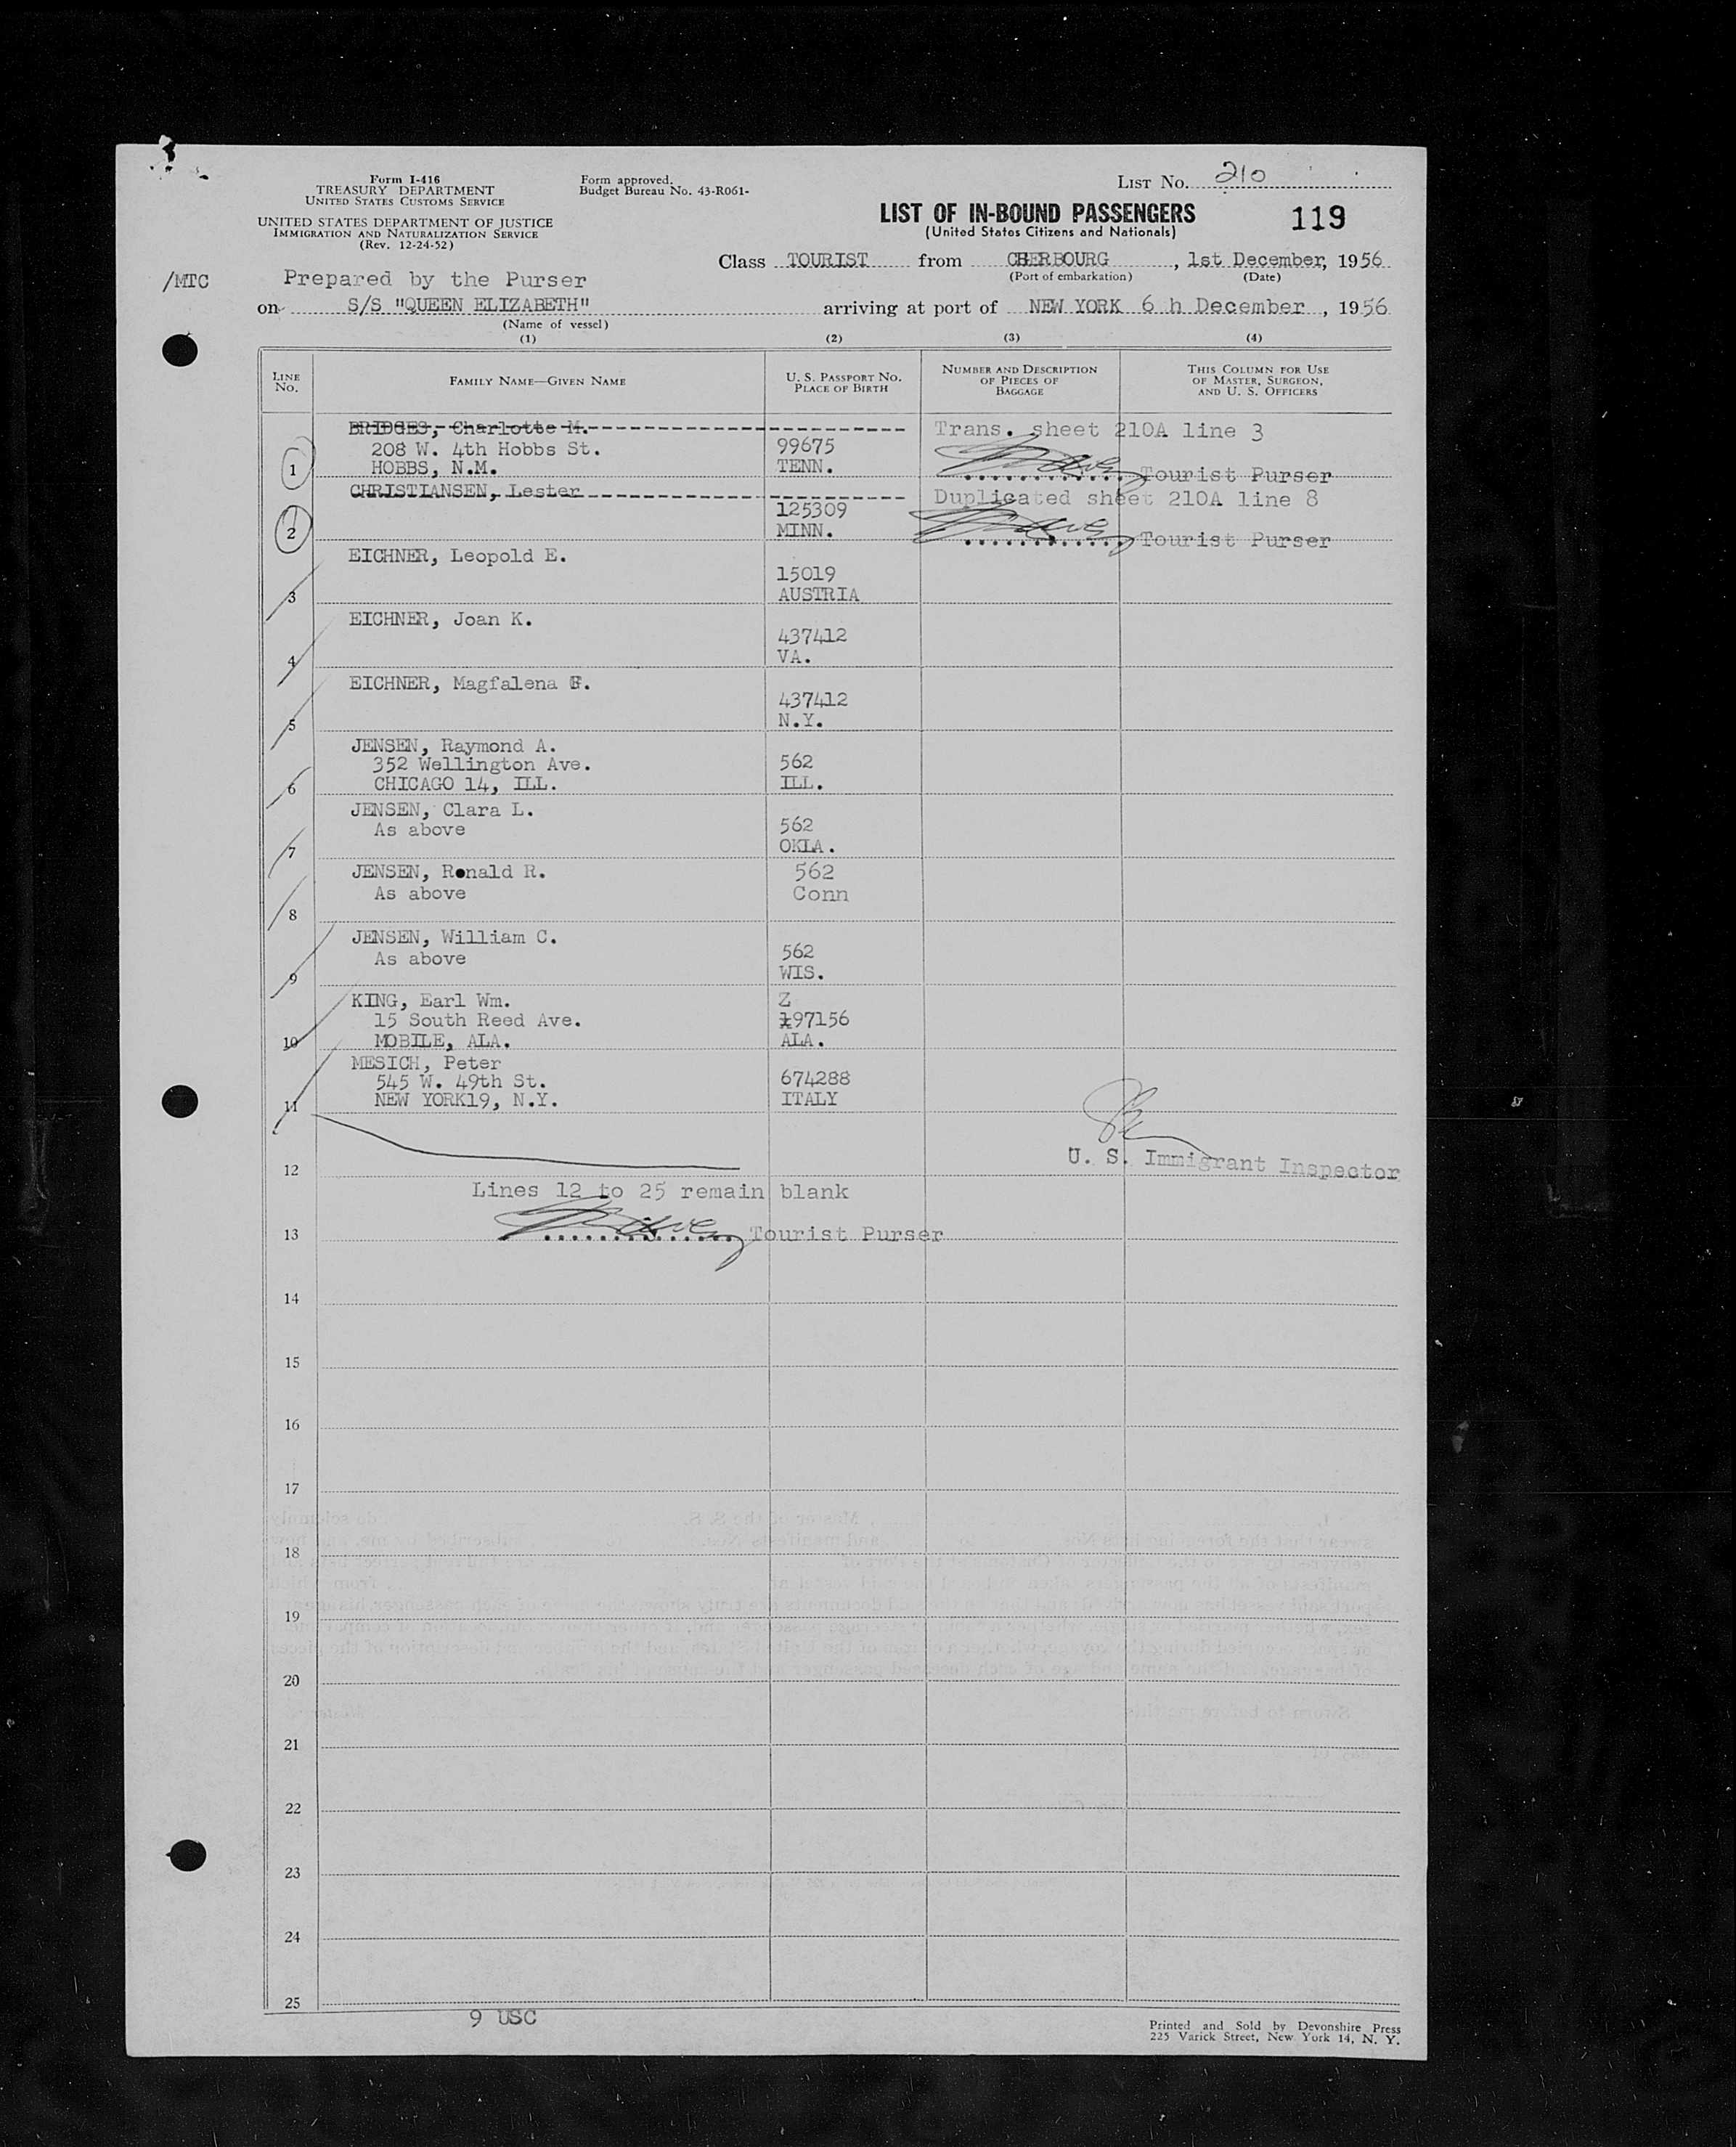 Form I-416
TREASURY DEPARTMENT
UNITED STATES CUSTOMS SERVICE
UNITED STATES DEPARTMENT OF JUSTICE
IMMIGRATION AND NATURALIZATION SERVICE
(Rev. 12-24-52)
Form approved.
Budget Bureau No. 43-R061-
LIST NO. 210
LIST OF IN-BOUND PASSENGERS 119
(United States Citizens and Nationals)
Class TOURIST from CHERBOURG, 1st December, 1956
(Port of embarkation) (Date)
/MTC Prepared by the Purser
on S/S "QUEEN ELIZABETH" arriving at port of NEW YORK 6 h December, 1956
(Name of vessel)
(1) (2) (3) (4)
LINE NO. FAMILY NAME—GIVEN NAME U. S. PASSPORT NO. PLACE OF BIRTH NUMBER AND DESCRIPTION OF PIECES OF BAGGAGE THIS COLUMN FOR USE OF MASTER, SURGEON, AND U. S. OFFICERS
BRIDGES, Charlotte M. Trans. sheet 210A line 3
208 W. 4th Hobbs St. 99675
1 HOBBS, N.M. TENN. Tourist Purser
CHRISTIANSEN, Lester Duplicated sheet 210A line 8
125309
2 MINN. Tourist Purser
EICHNER, Leopold E.
15019
3 AUSTRIA
EICHNER, Joan K.
437412
4 VA.
EICHNER, Magfalena F.
437412
5 N.Y.
JENSEN, Raymond A.
352 Wellington Ave. 562
6 CHICAGO 14, ILL. ILL.
JENSEN, Clara L.
As above 562
7 OKLA.
JENSEN, Ronald R. 562
As above Conn
8
JENSEN, William C.
As above 562
9 WIS.
KING, Earl Wm. Z
15 South Reed Ave. 197156
10 MOBILE, ALA. ALA.
MESICH, Peter
545 W. 49th St. 674288
11 NEW YORK19, N.Y. ITALY
12 U. S. Immigrant Inspector
Lines 12 to 25 remain blank
13 Tourist Purser
14
15
16
17
18
19
20
21
22
23
24
25
9 USC
Printed and Sold by Devonshire Press
225 Varick Street, New York 14, N. Y.